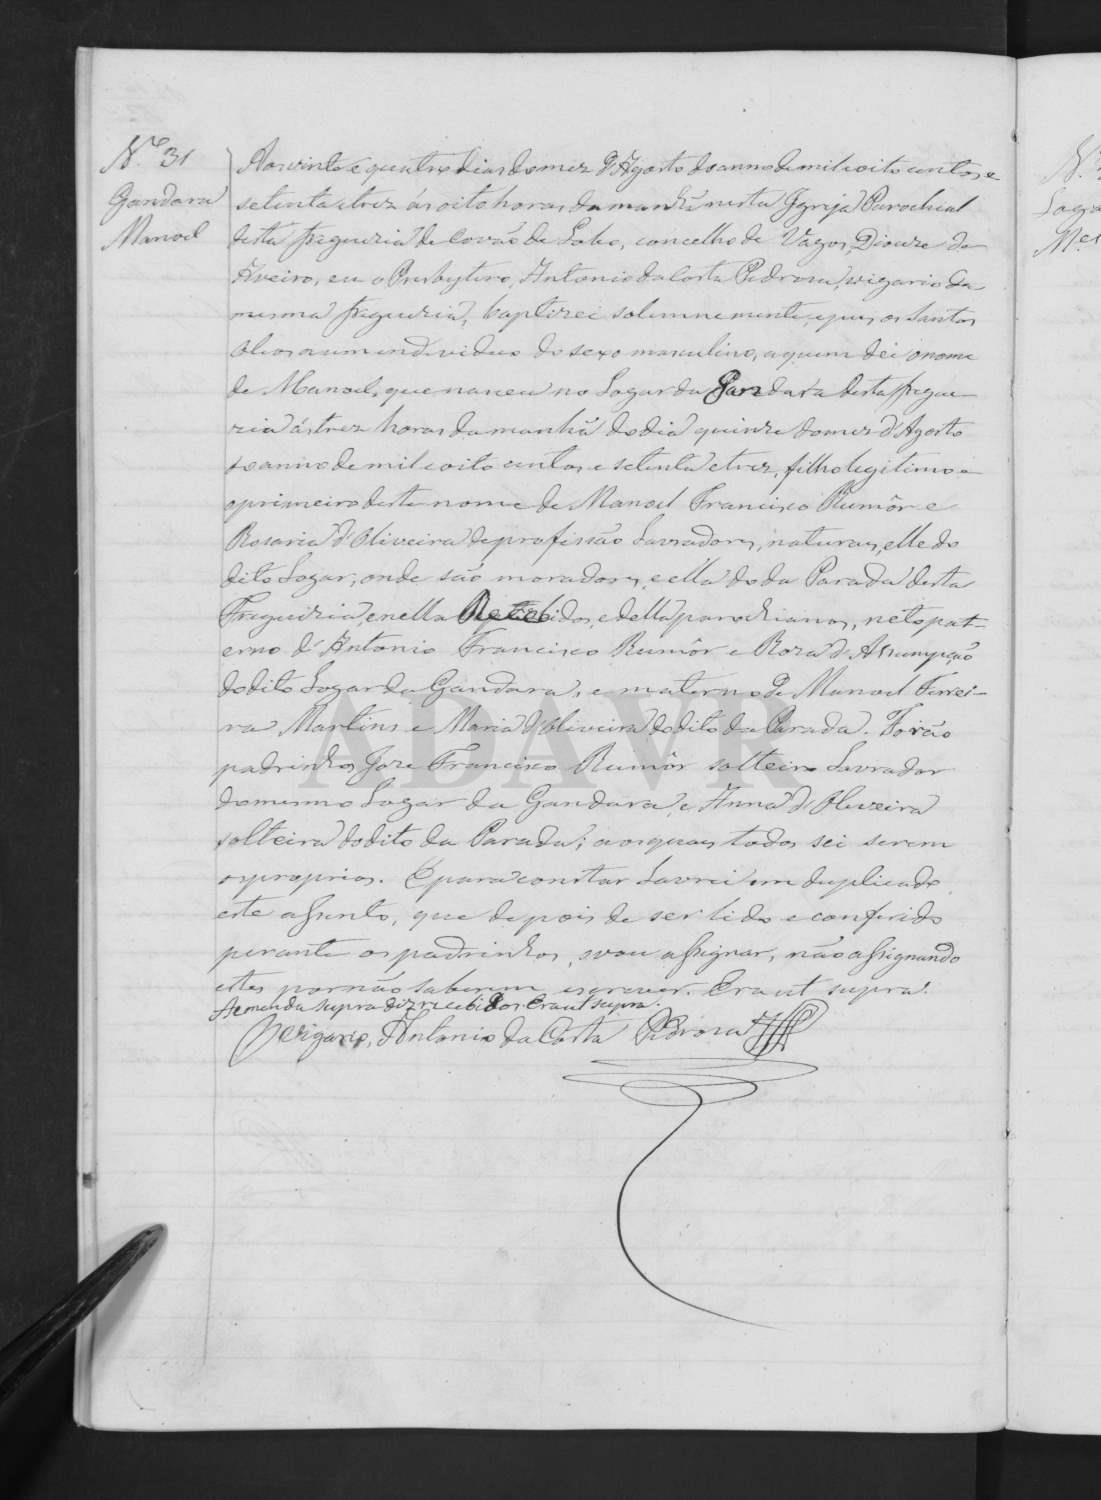 N.º 31
Gandara
Manoel
Aos vinte e quatro dias do mez d'Agosto do anno de mil e oito centos e
setenta e trez ás oito horas da manhã nesta Igreja Parochial
desta freguezia de Covão do Lobo, concelho de Vagos, Diocese de
Aveiro, eu o Presbytero, Antonio da Costa Pedrosa, vigario da
mesma freguezia, baptizei solemnemente, e puz os Santos
Oleos a um individuo do sexo masculino, a quem dei o nome
de Manoel, que nasceu no Logar da Gandara desta fregue-
zia ás trez horas da manhã do dia quinze do mez d'Agosto
do anno de mil e oito centos e setenta e trez, filho legitimo e
o primeiro deste nome de Manoel Francisco Rumôr e
Rosaria d'Oliveira de profissão Lavradores, naturaes, elle do
dito Logar, onde são moradores, e ella do da Parada desta
Freguezia, e nella Recebidos, e della parochianos, neto pat-
erno d'Antonio Francisco Rumôr e Roza d'Assumpção
do dito Logar da Gandara, e materno de Manoel Ferrei-
ra Martins e Maria d'Oliveira do dito da Parada. Forão
padrinhos Joze Francisco Rumôr solteiro Lavrador
do mesmo Logar da Gandara, e Anna d'Oliveira
solteira do dito da Parada; aos quaes todos sei serem
os proprios. E para constar Lavrei em duplicado
este assento, que depois de ser lido e conferido
perante os padrinhos, vou assignar, não assignando
estes por não saberem escrever. Era ut supra.
A emenda supra diz recebidos. Era ut supra.
O Vigario, Antonio da Costa Pedrosa
ADAVR
N.º
Loga
M.el